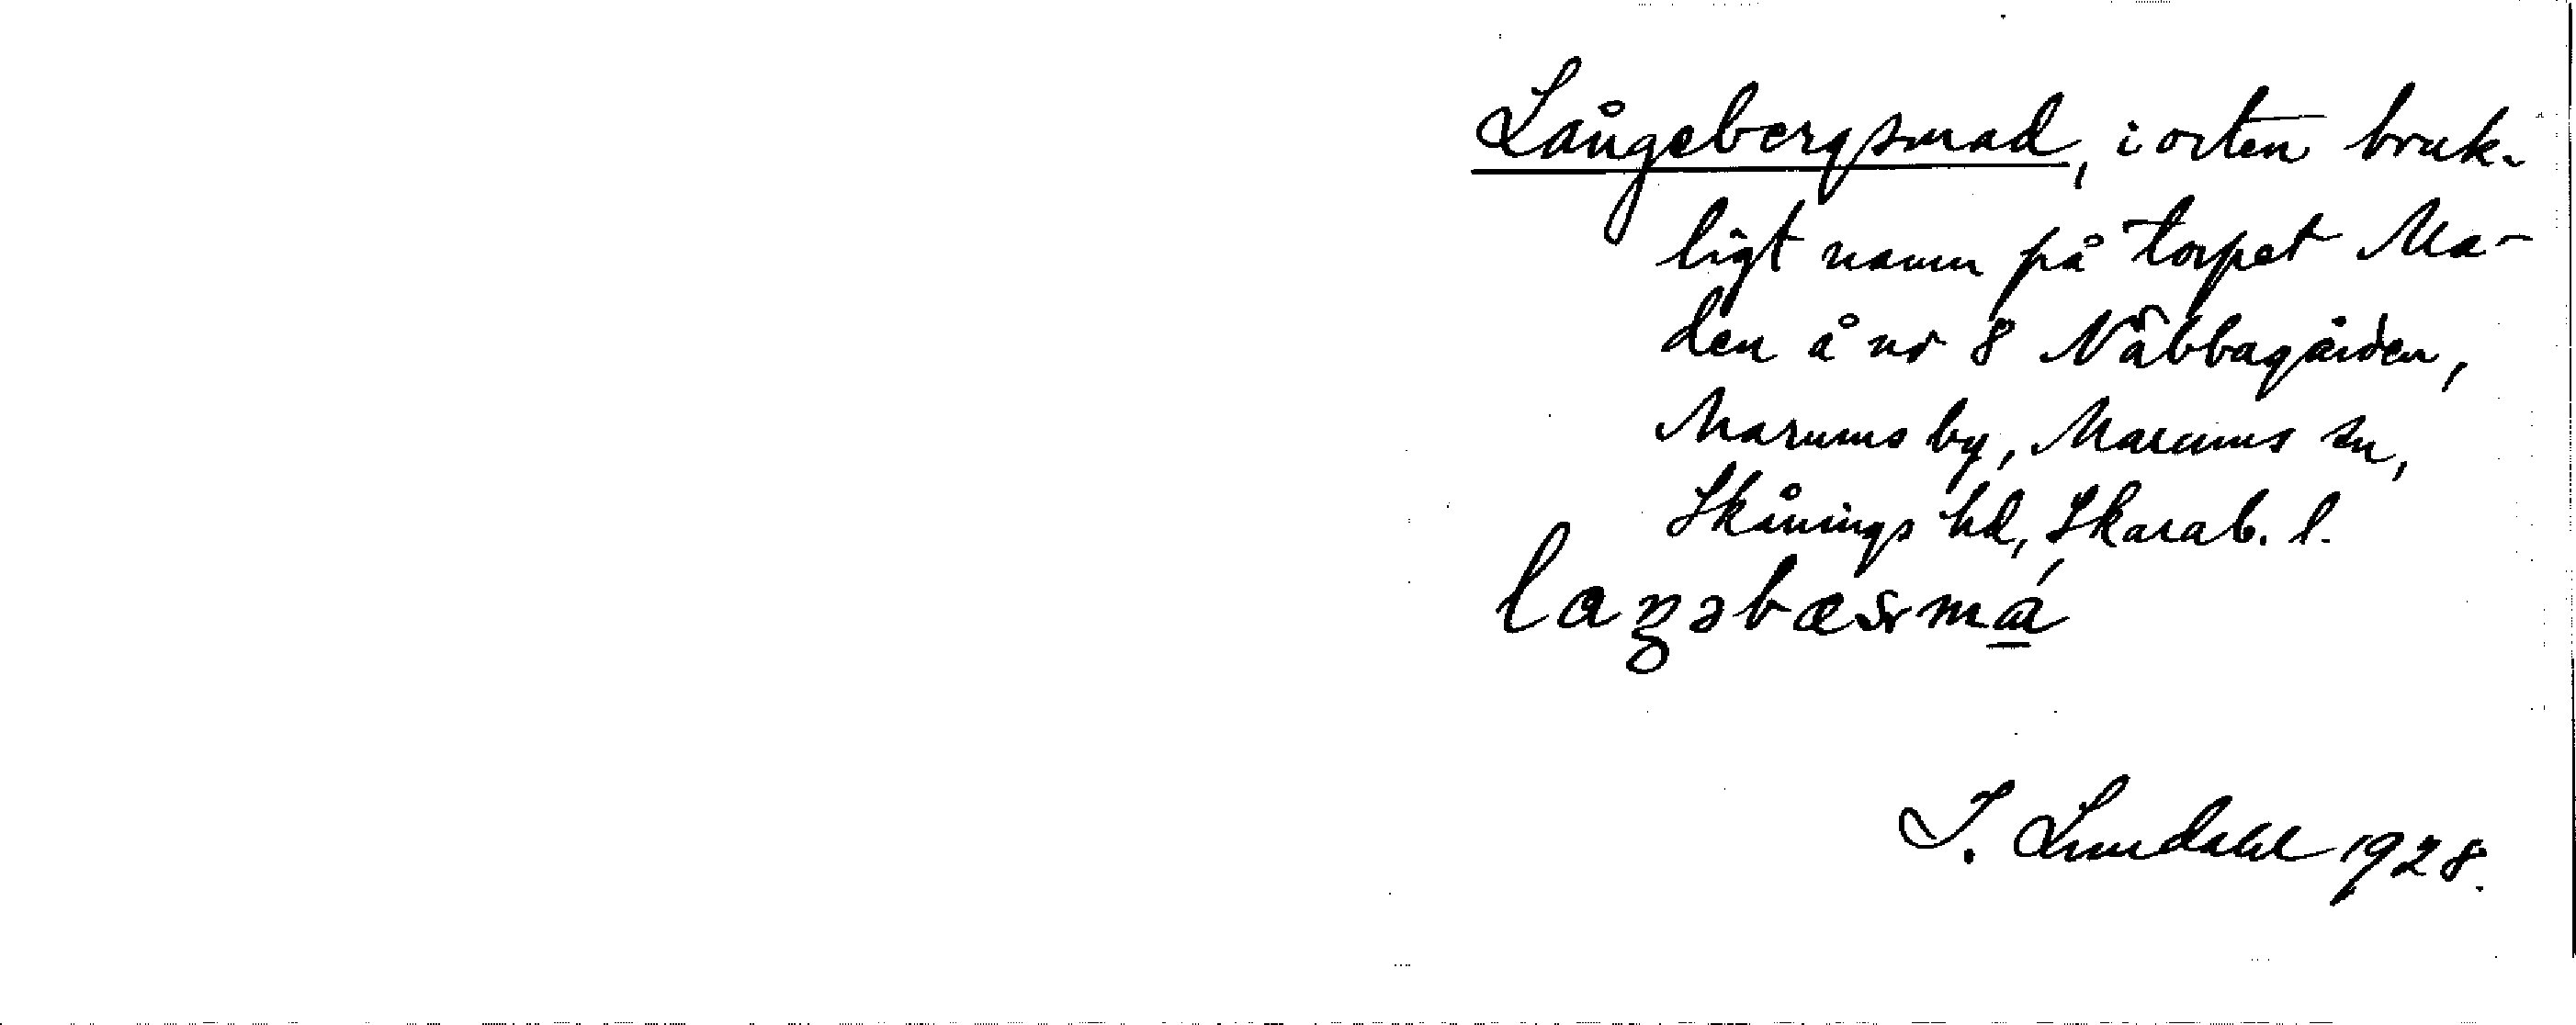 Långebergsmad, i orten bruk-
ligt namn på torpet Ma-
den å nr 8 Nåbbagården,
Marums by, Marums sn,
Skånings hd, Skarab. l.
I. Lundahl 1928.